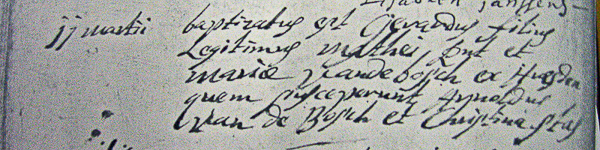 Janssens
jj martii baptizatus est Gerardus filius
Legitimus mathei et
mariæ vande bosch ex
quem susceperunt Arnoldus
van de Bosch et Christina